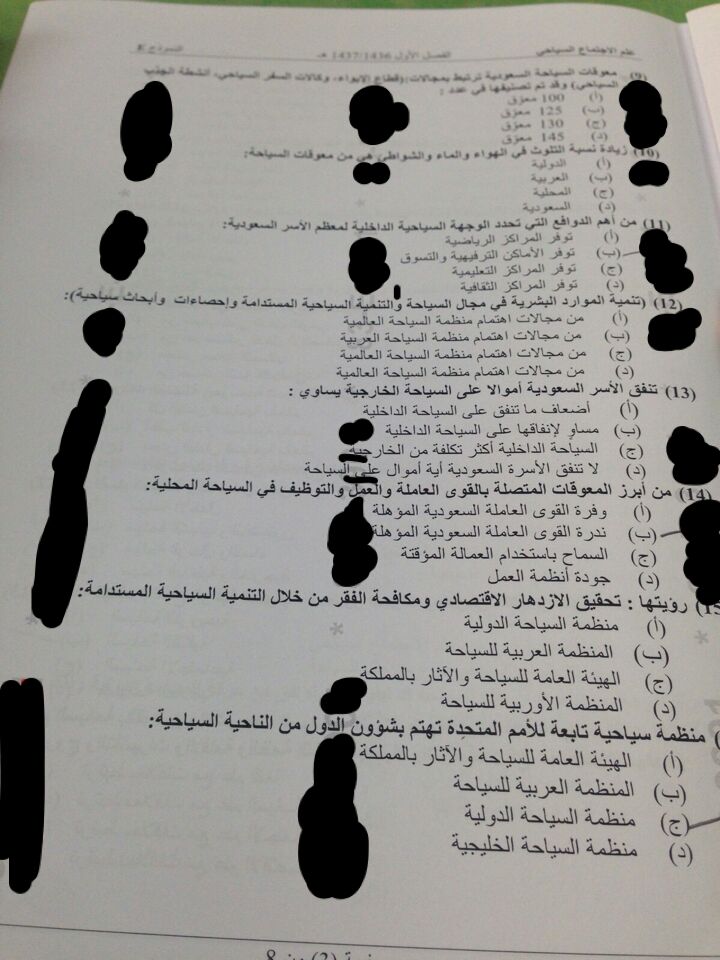 علم الاجتماع السياحي الفصل الأول 1437/1436 هـ النموذج E
9) معوقات السياحة السعودية ترتبط بمجالات (قطاع الإيواء، وكالات السفر السياحي، أنشطة الجذب
السياحي) وقد تم تصنيفها في عدد :
(أ) 100 معوق
(ب) 125 معوق
(ج) 130 معوق
(د) 145 معوق
10) زيادة نسبة التلوث في الهواء والماء والشواطئ هي من معوقات السياحة:
(أ) الدولية
(ب) العربية
(ج) المحلية
(د) السعودية
11) من أهم الدوافع التي تحدد الوجهة السياحية الداخلية لمعظم الأسر السعودية:
(أ) توفر المراكز الرياضية
(ب) توفر الأماكن الترفيهية والتسوق
(ج) توفر المراكز التعليمية
(د) توفر المراكز الثقافية
12) (تنمية الموارد البشرية في مجال السياحة والتنمية السياحية المستدامة وإحصاءات وأبحاث سياحية):
(أ) من مجالات اهتمام منظمة السياحة العالمية
(ب) من مجالات اهتمام منظمة السياحة العربية
(ج) من مجالات اهتمام منظمة السياحة العالمية
(د) من مجالات اهتمام منظمة السياحة العالمية
13) تنفق الأسر السعودية أموالا على السياحة الخارجية يساوي :
(أ) أضعاف ما تنفق على السياحة الداخلية
(ب) مساو لإنفاقها على السياحة الداخلية
(ج) السياحة الداخلية أكثر تكلفة من الخارجية
(د) لا تنفق الأسرة السعودية أية أموال على السياحة
14) من أبرز المعوقات المتصلة بالقوى العاملة والعمل والتوظيف في السياحة المحلية:
(أ) وفرة القوى العاملة السعودية المؤهلة
(ب) ندرة القوى العاملة السعودية المؤهلة
(ج) السماح باستخدام العمالة المؤقتة
(د) جودة أنظمة العمل
15) رؤيتها : تحقيق الازدهار الاقتصادي ومكافحة الفقر من خلال التنمية السياحية المستدامة:
(أ) منظمة السياحة الدولية
(ب) المنظمة العربية للسياحة
(ج) الهيئة العامة للسياحة والآثار بالمملكة
(د) المنظمة الأوربية للسياحة
) منظمة سياحية تابعة للأمم المتحدة تهتم بشؤون الدول من الناحية السياحية:
(أ) الهيئة العامة للسياحة والآثار بالمملكة
(ب) المنظمة العربية للسياحة
(ج) منظمة السياحة الدولية
(د) منظمة السياحة الخليجية
(2) من 8